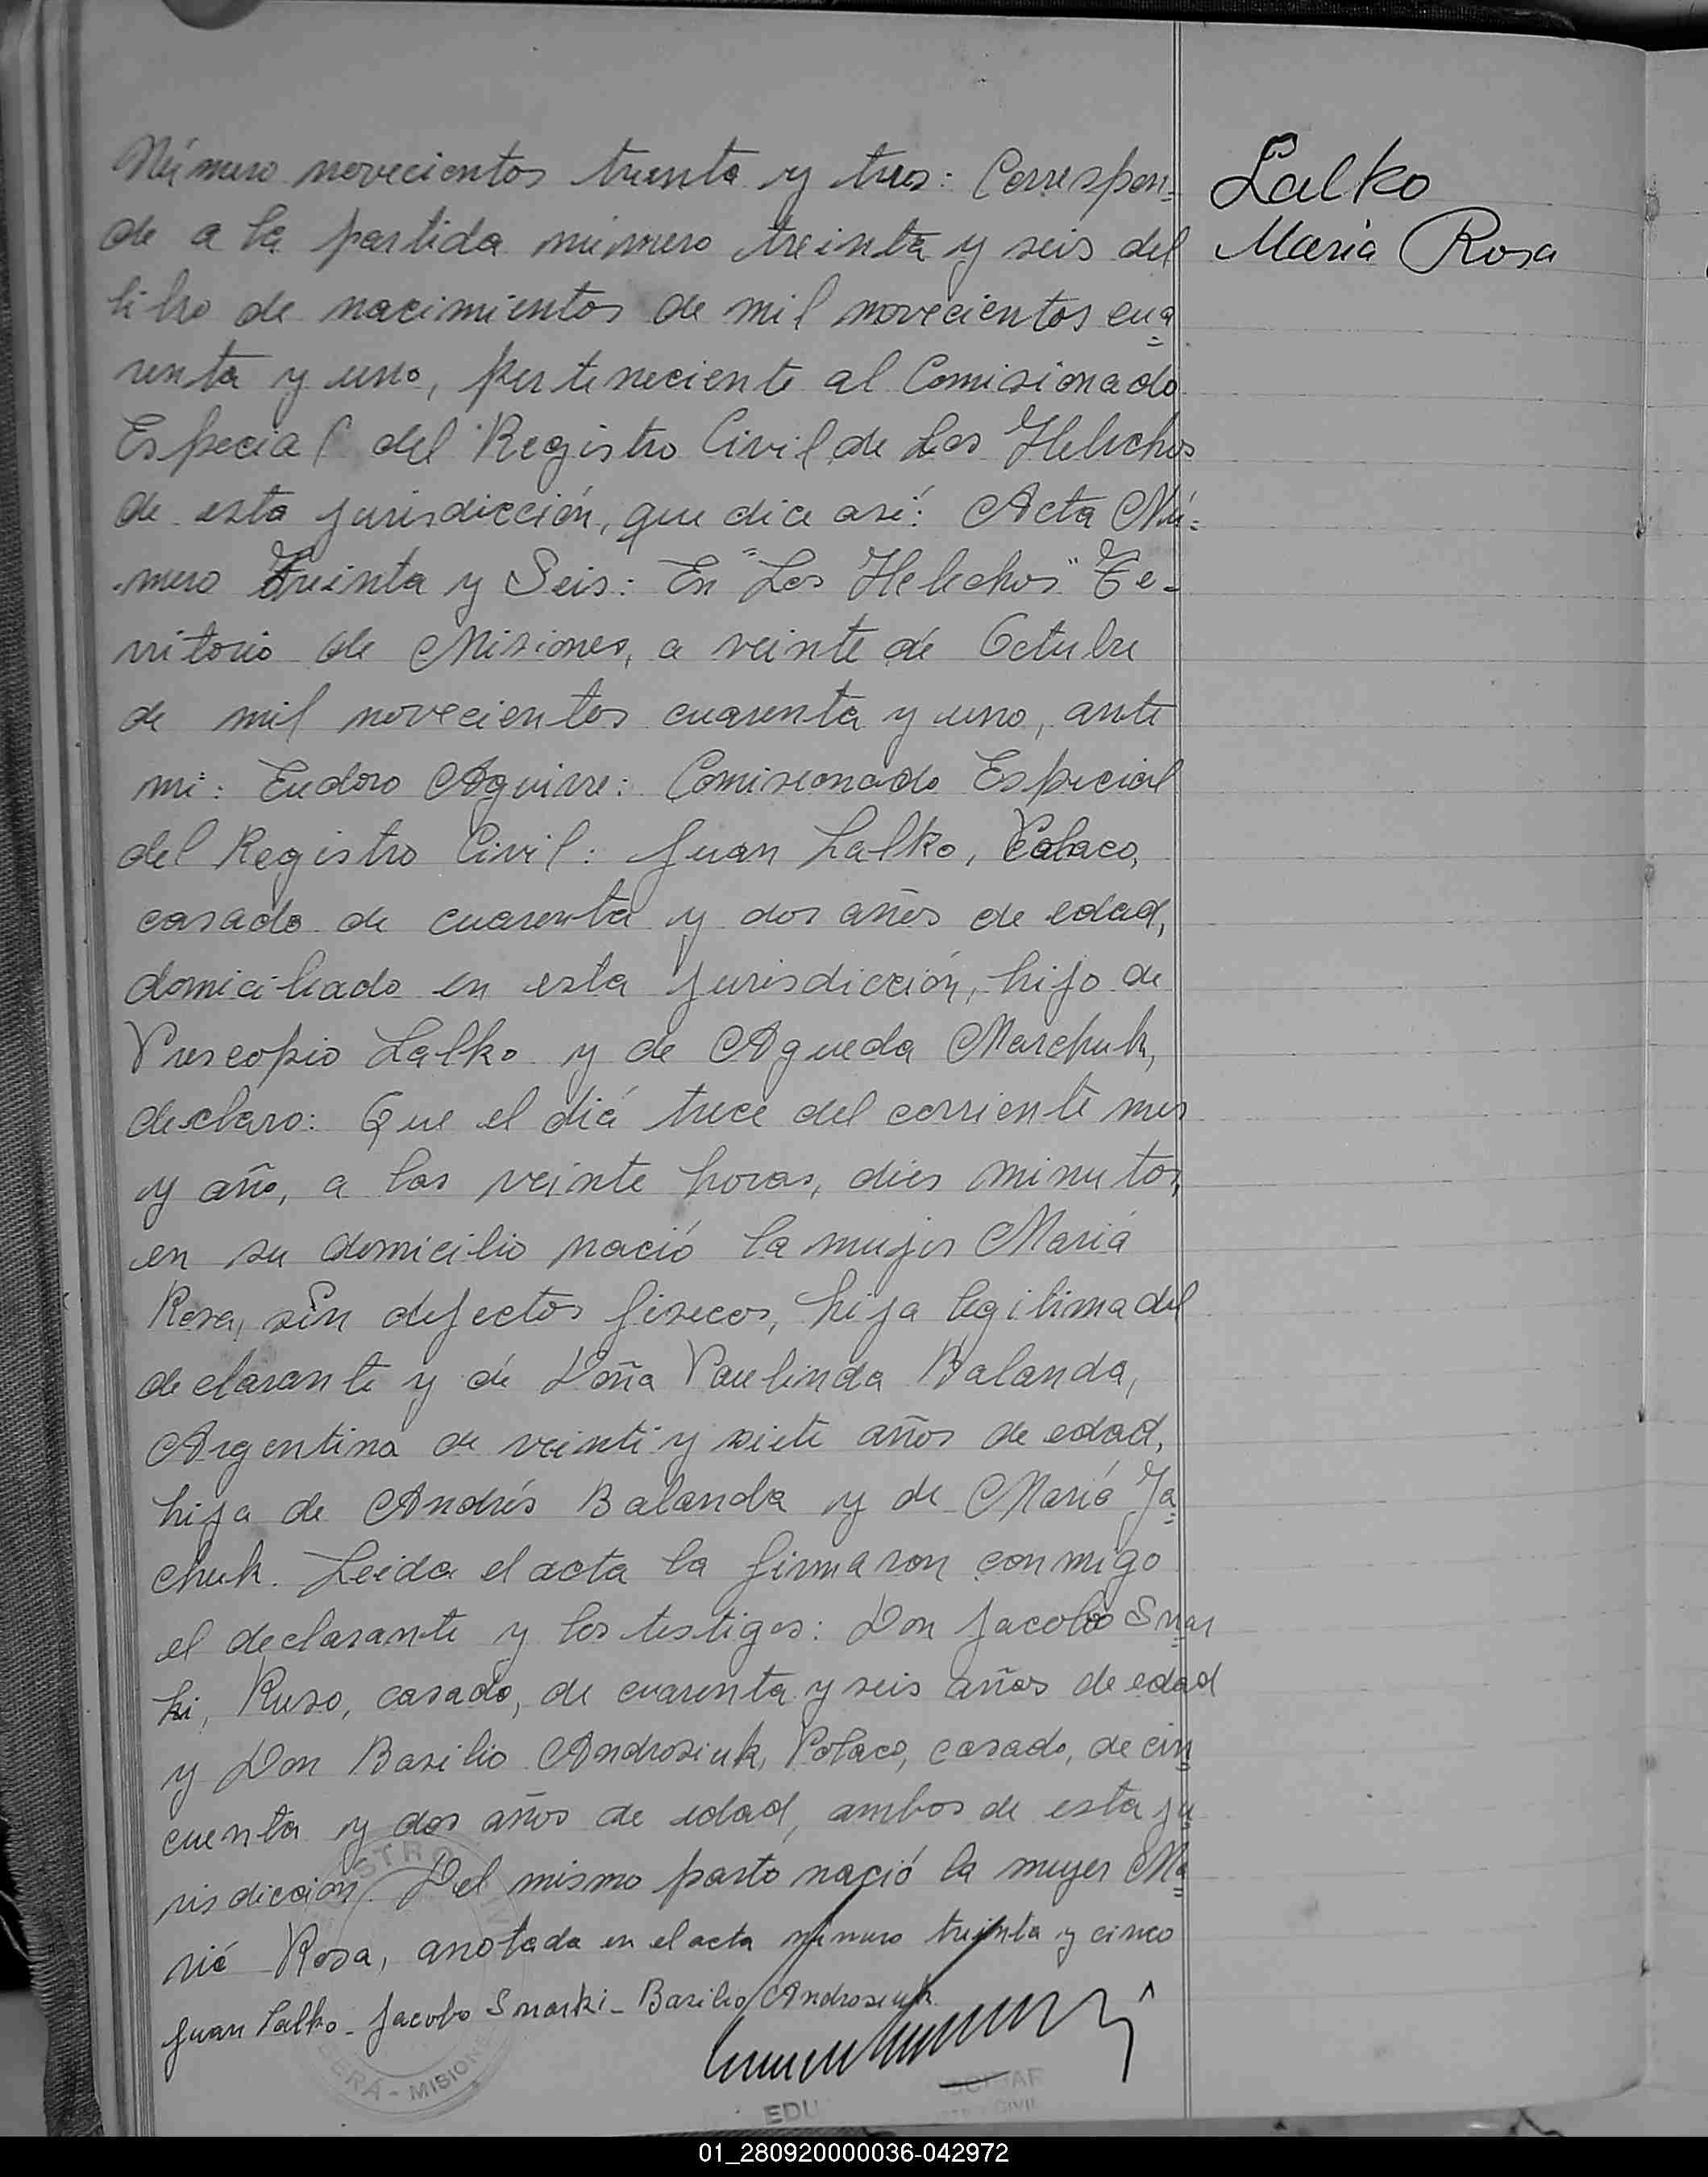 Número novecientos treinta y tres: Correspon=
de a la partida número treinta y seis del
libro de nacimientos de mil novecientos cua=
renta y uno, perteneciente al Comisionado
Especial del Registro Civil de Los Helechos
de esta jurisdicción, que dice así: Acta Nú=
mero Treinta y Seis: En "Los Helechos" Te-
rritorio de Misiones, a veinte de Octubre
de mil novecientos cuarenta y uno, ante
mi: Eudoro Aguirre: Comisionado Especial
del Registro Civil: Juan Lalko, Polaco,
casado de cuarenta y dos años de edad,
domiciliado en esta jurisdicción, hijo de
Prescopio Lalko y de Agueda Marchuk,
declaro: Que el día trece del corriente mes
y año, a las veinte horas, dies minutos,
en su domicilio nació la mujer María
Rosa, sin defectos fisecos, hija legitima del
declarante y de Doña Paulinda Balanda,
Argentina de veinti y siete años de edad,
hija de Andrés Balanda y de María Ja=
chuk. Leida el acta la firmaron conmigo
el declarante y los testigos: Don Jacobo Snar
ki, Ruso, casado, de cuarenta y seis años de edad
y Don Basilio Androsiuk, Polaco, casado, de cin=
cuenta y dos años de edad, ambos de esta ju=
risdiccion. Del mismo parto nació la mujer Ma=
ría Rosa, anotada en el acta número treinta y cinco
Juan Lalko - Jacobo Snarki - Basilio Androsiuk
Lalko
Maria Rosa
ERÁ - MISION
EDU
CIVIL
01_280920000036-042972